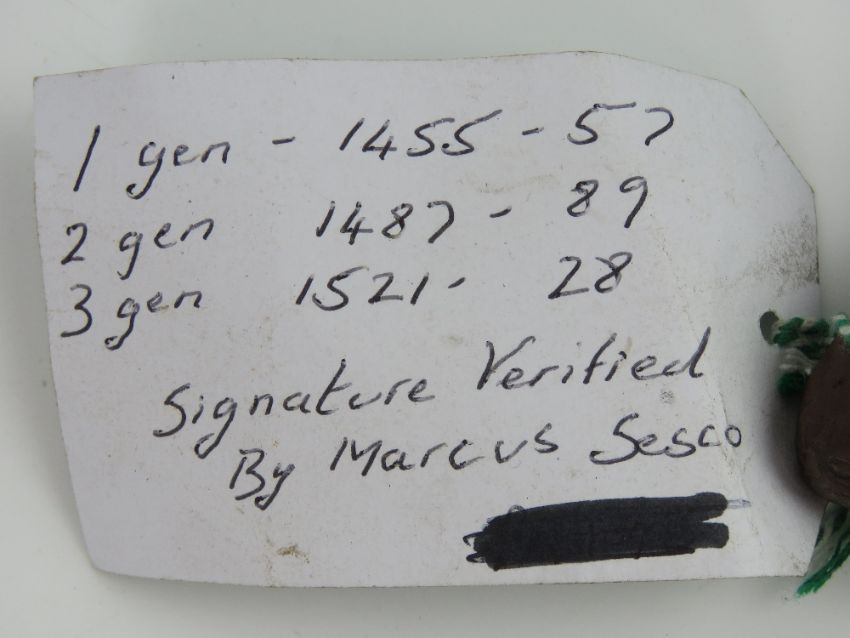 1 gen - 1455 - 57
2 gen 1487 - 89
3 gen 1521 - 28
Signature Verified
By Marcus Sesco